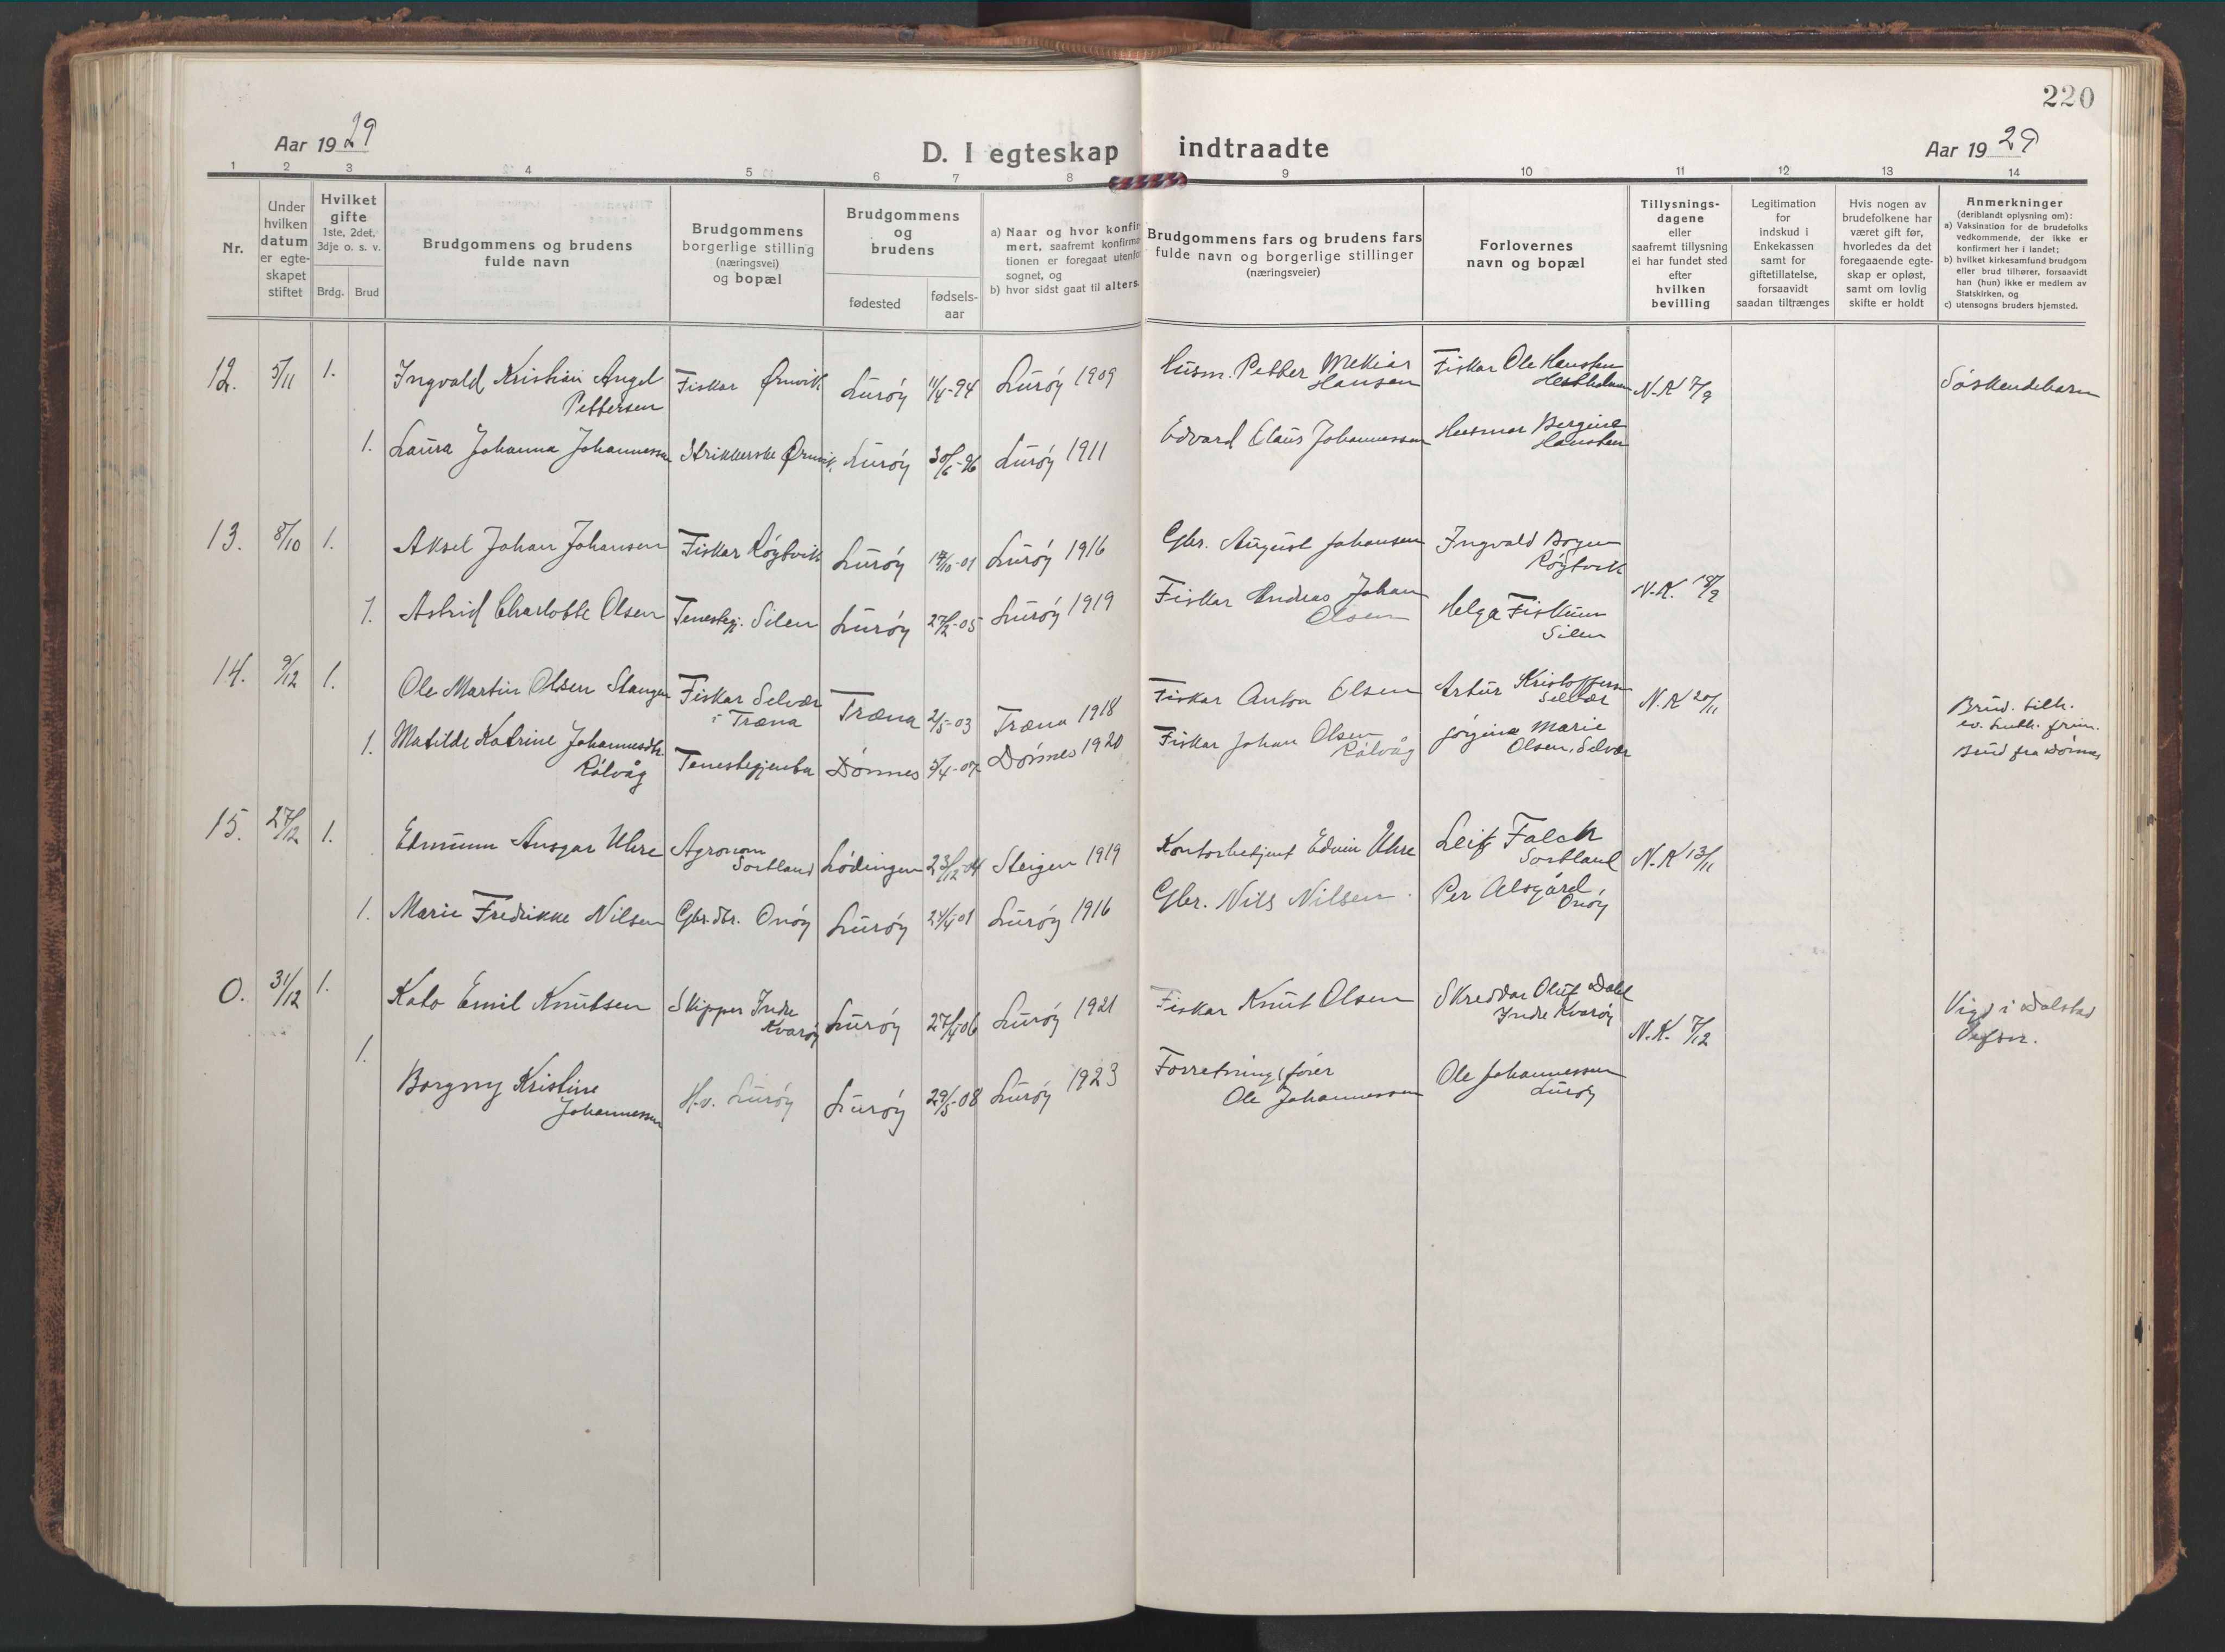 220
Aar 1929
D. I egteskap indtraadte
Aar 1929
1 2 3 4 5 6 7 8 9 10 11 12 13 14
Nr.
Under
hvilken
datum
er egte-
skapet
stiftet
Hvilket
gifte
1ste, 2det,
3dje o. s. v.
Brdg. Brud
Brudgommens og brudens
fulde navn
Brudgommens
borgerlige stilling
(næringsvei)
og bopæl
Brudgommens
og
brudens
fødested
fødsels-
aar
a) Naar og hvor konfir
mert, saafremt konfirma
tionen er foregaat utenfo
sognet, og
b) hvor sidst gaat til alters.
Brudgommens fars og brudens fars
fulde navn og borgerlige stillinger
(næringsveier)
Forlovernes
navn og bopæl
Tillysnings-
dagene
eller
saafremt tillysning
ei har fundet sted
efter
hvilken
bevilling
Legitimation
for
indskud i
Enkekassen
samt for
giftetillatelse,
forsaavidt
saadan tiltrænges
Hvis nogen av
brudefolkene har
været gift før,
hvorledes da det
foregaaende egte-
skap er opløst,
samt om lovlig
skifte er holdt
Anmerkninger
(deriblandt oplysning om):
a) Vaksination for de brudefolks
vedkommende, der ikke er
konfirmert her i landet;
b) hvilket kirkesamfund brudgom
eller brud tilhører, forsaavidt
han (hun) ikke er medlem av
Statskirken, og
c) utensogns bruders hjemsted.
12. 5/11 1. Ingvald Kristian Angel
Pettersen
Fiskar Ørnvik Lurøy 11/4-94 Lurøy 1909
Husm. Petter Mekias
Hansen
Fiskar Ole Hansten
Hestholmen
N.K 7/9
Søskendebarn
1. Laura Johanna Johannessen Strikkerske Ørnvik. Lurøy 30/6-96 Lurøy 1911
Edvard Claus Johannessen
Husmor Bergine
Hansten
13. 8/10 1. Aksel Johan Johansen Fiskar Røytvik Lurøy 17/10-01 Lurøy 1916
Gbr. August Johansen
Ingvald Bogen
Røytvik
N.K. 18/9
1. Astrid Charlotte Olsen Tenestegj. Silen Lurøy 27/2-05 Lurøy 1919
Fiskar Andreas Johan
Olsen
Helga Fiskum
Silen
14. 9/12 1. Ole Martin Olsen Stangen
Fiskar Selvær
i Træna
Træna 2/5-03 Træna 1918
Fiskar Anton Olsen
Artur Kristoffersen
Selvær
N.K 20/11
Brud. tilh.
ev. luth. frim.
Brud fra Dønnes
1. Matilde Katrine Johannesdtr.
Rølvåg
Tenestegjenta Dønnes 5/4-07 Dønnes 1920
Fiskar Johan Olsen
Rølvåg
Jørgine Marie
Olsen, Selvær
15. 27/12 1. Edmunn Ansgar Uhre
Agronom
Sortland
Lødingen 23/12-04 Steigen 1919
Kontorbetjent Edvin Uhre
Leif Falch
Sortland
N.K 13/11
1. Marie Fredrikke Nilsen Gbr.dtr. Onøy Lurøy 24/4-01 Lurøy 1916
Gbr. Nils Nilsen.
Per Alsgård
Onøy
0. 31/12 1. Kato Emil Knutsen
Skipper Indre
Kvarøy
Lurøy 27/4-06 Lurøy 1921
Fiskar Knut Olsen
Skreddar Oluf Dahl
Indre Kvarøy
N.K. 7/12
Vigd i Dolstad
Vefsn.
1. Borgny Kristine
Johannessen
H.v. Lurøy Lurøy 29/5-08 Lurøy 1923
Forretningsfører
Ole Johannessen
Ole Johannessen
Lurøy